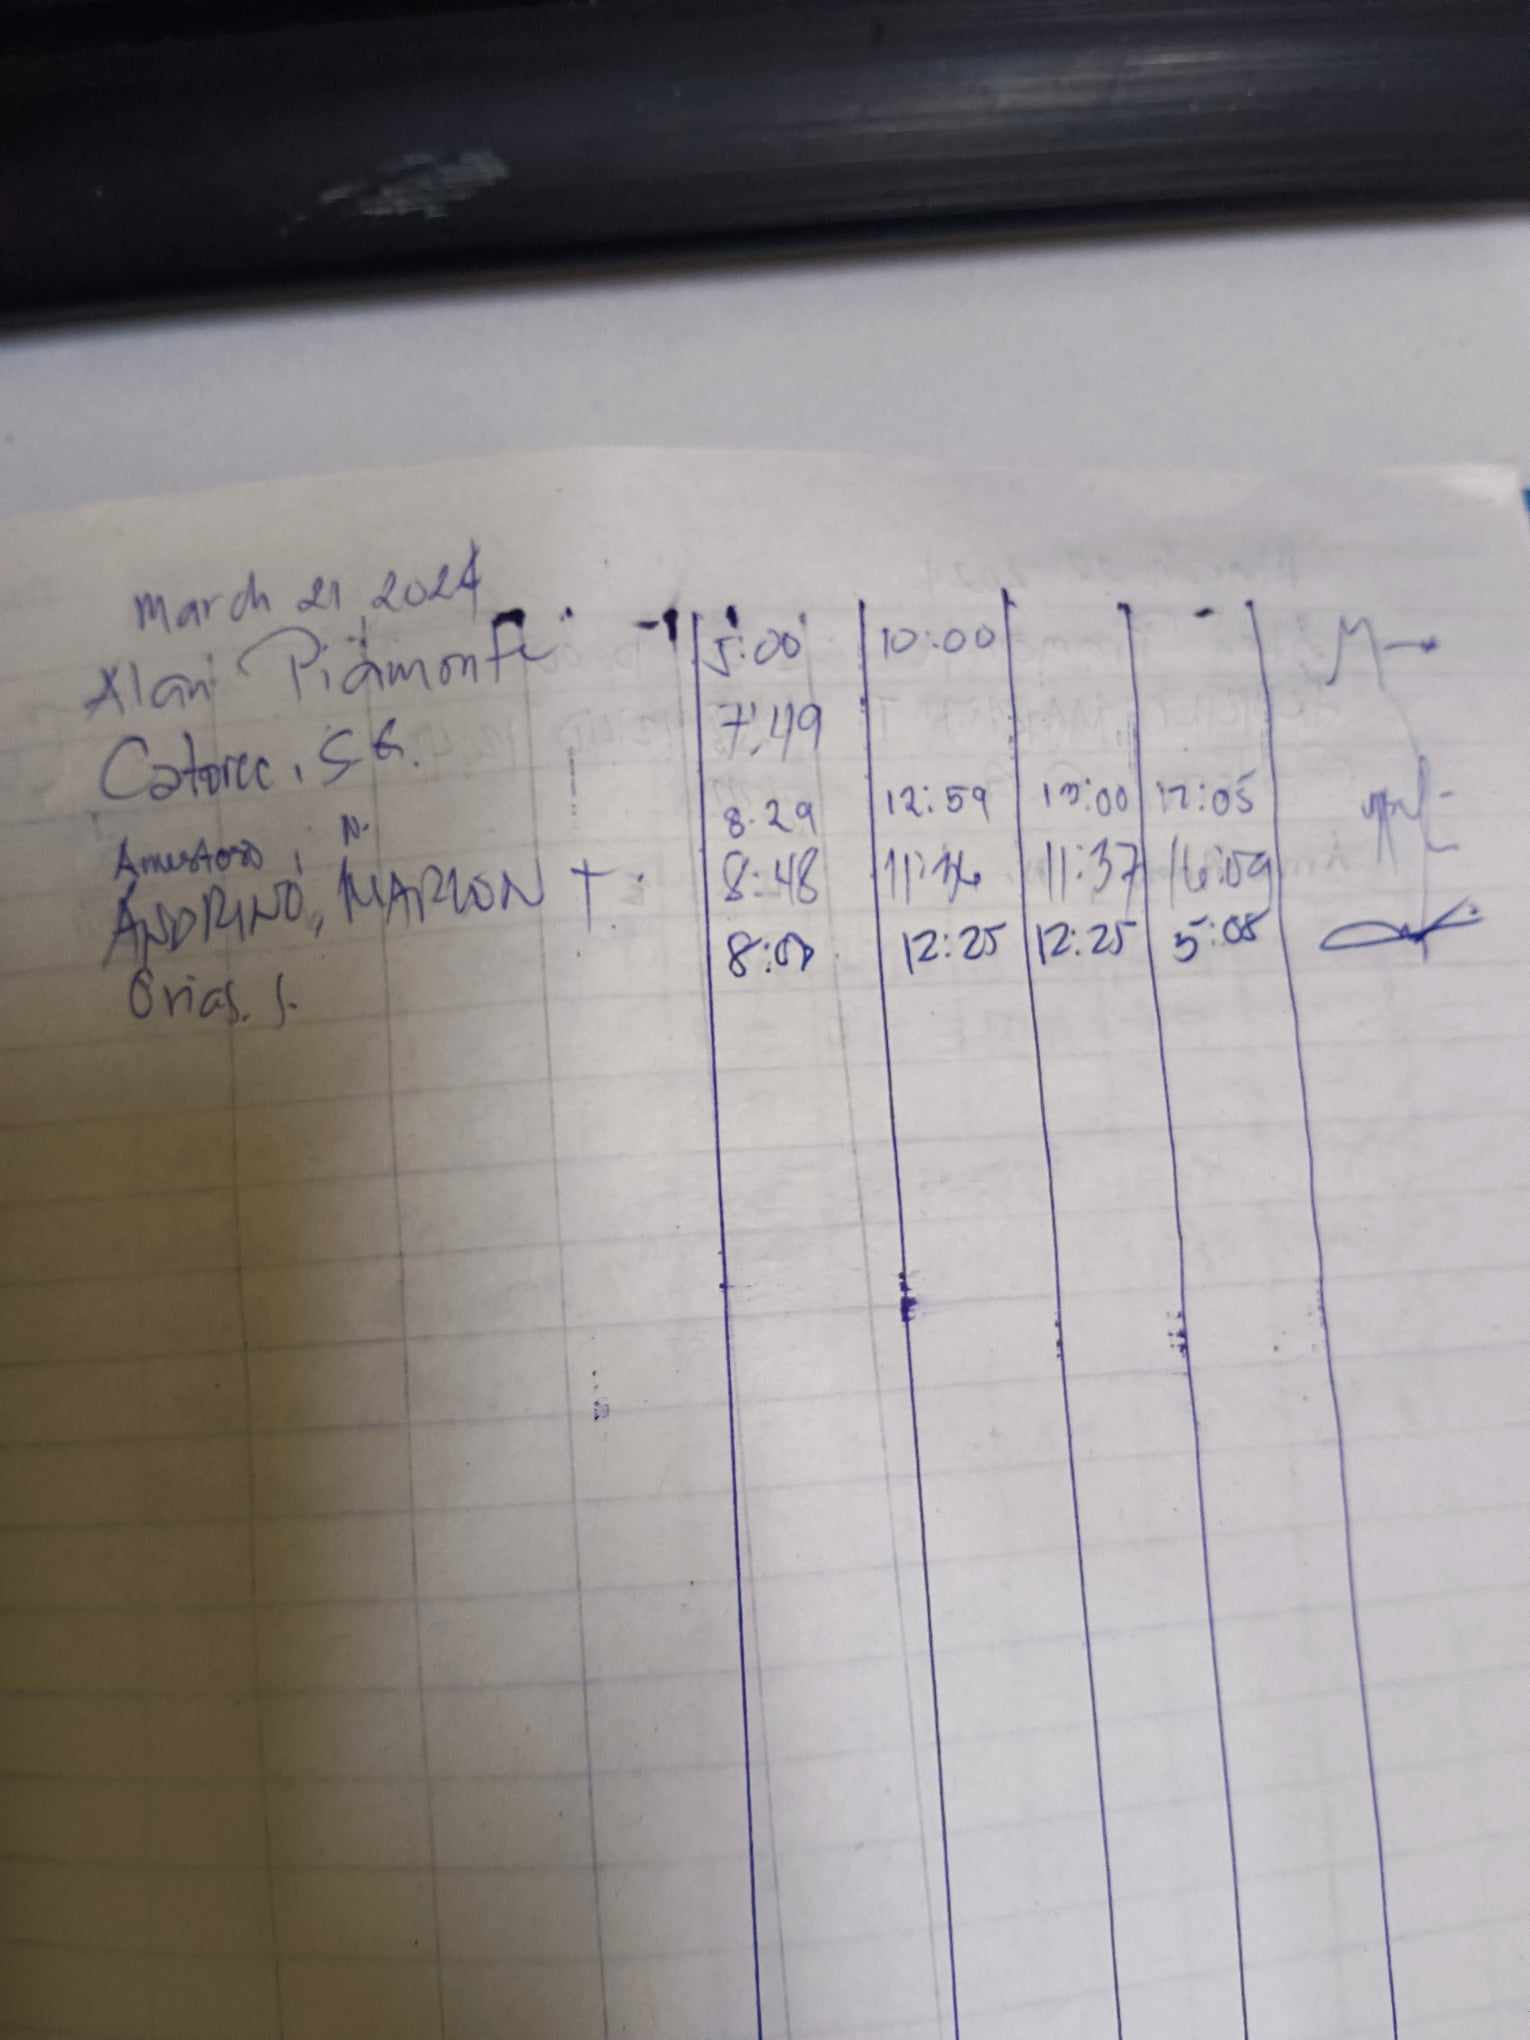 March 21, 2024
Alan Piamonte 5:00 10:00
Catorce, S G. 7:49
Amestoso, N. 8:29 12:59 13:00 17:05
ANDRINO, MARLON T. 8:48 11:36 11:37 16:09
Orias. J. 8:00 12:25 12:25 5:08